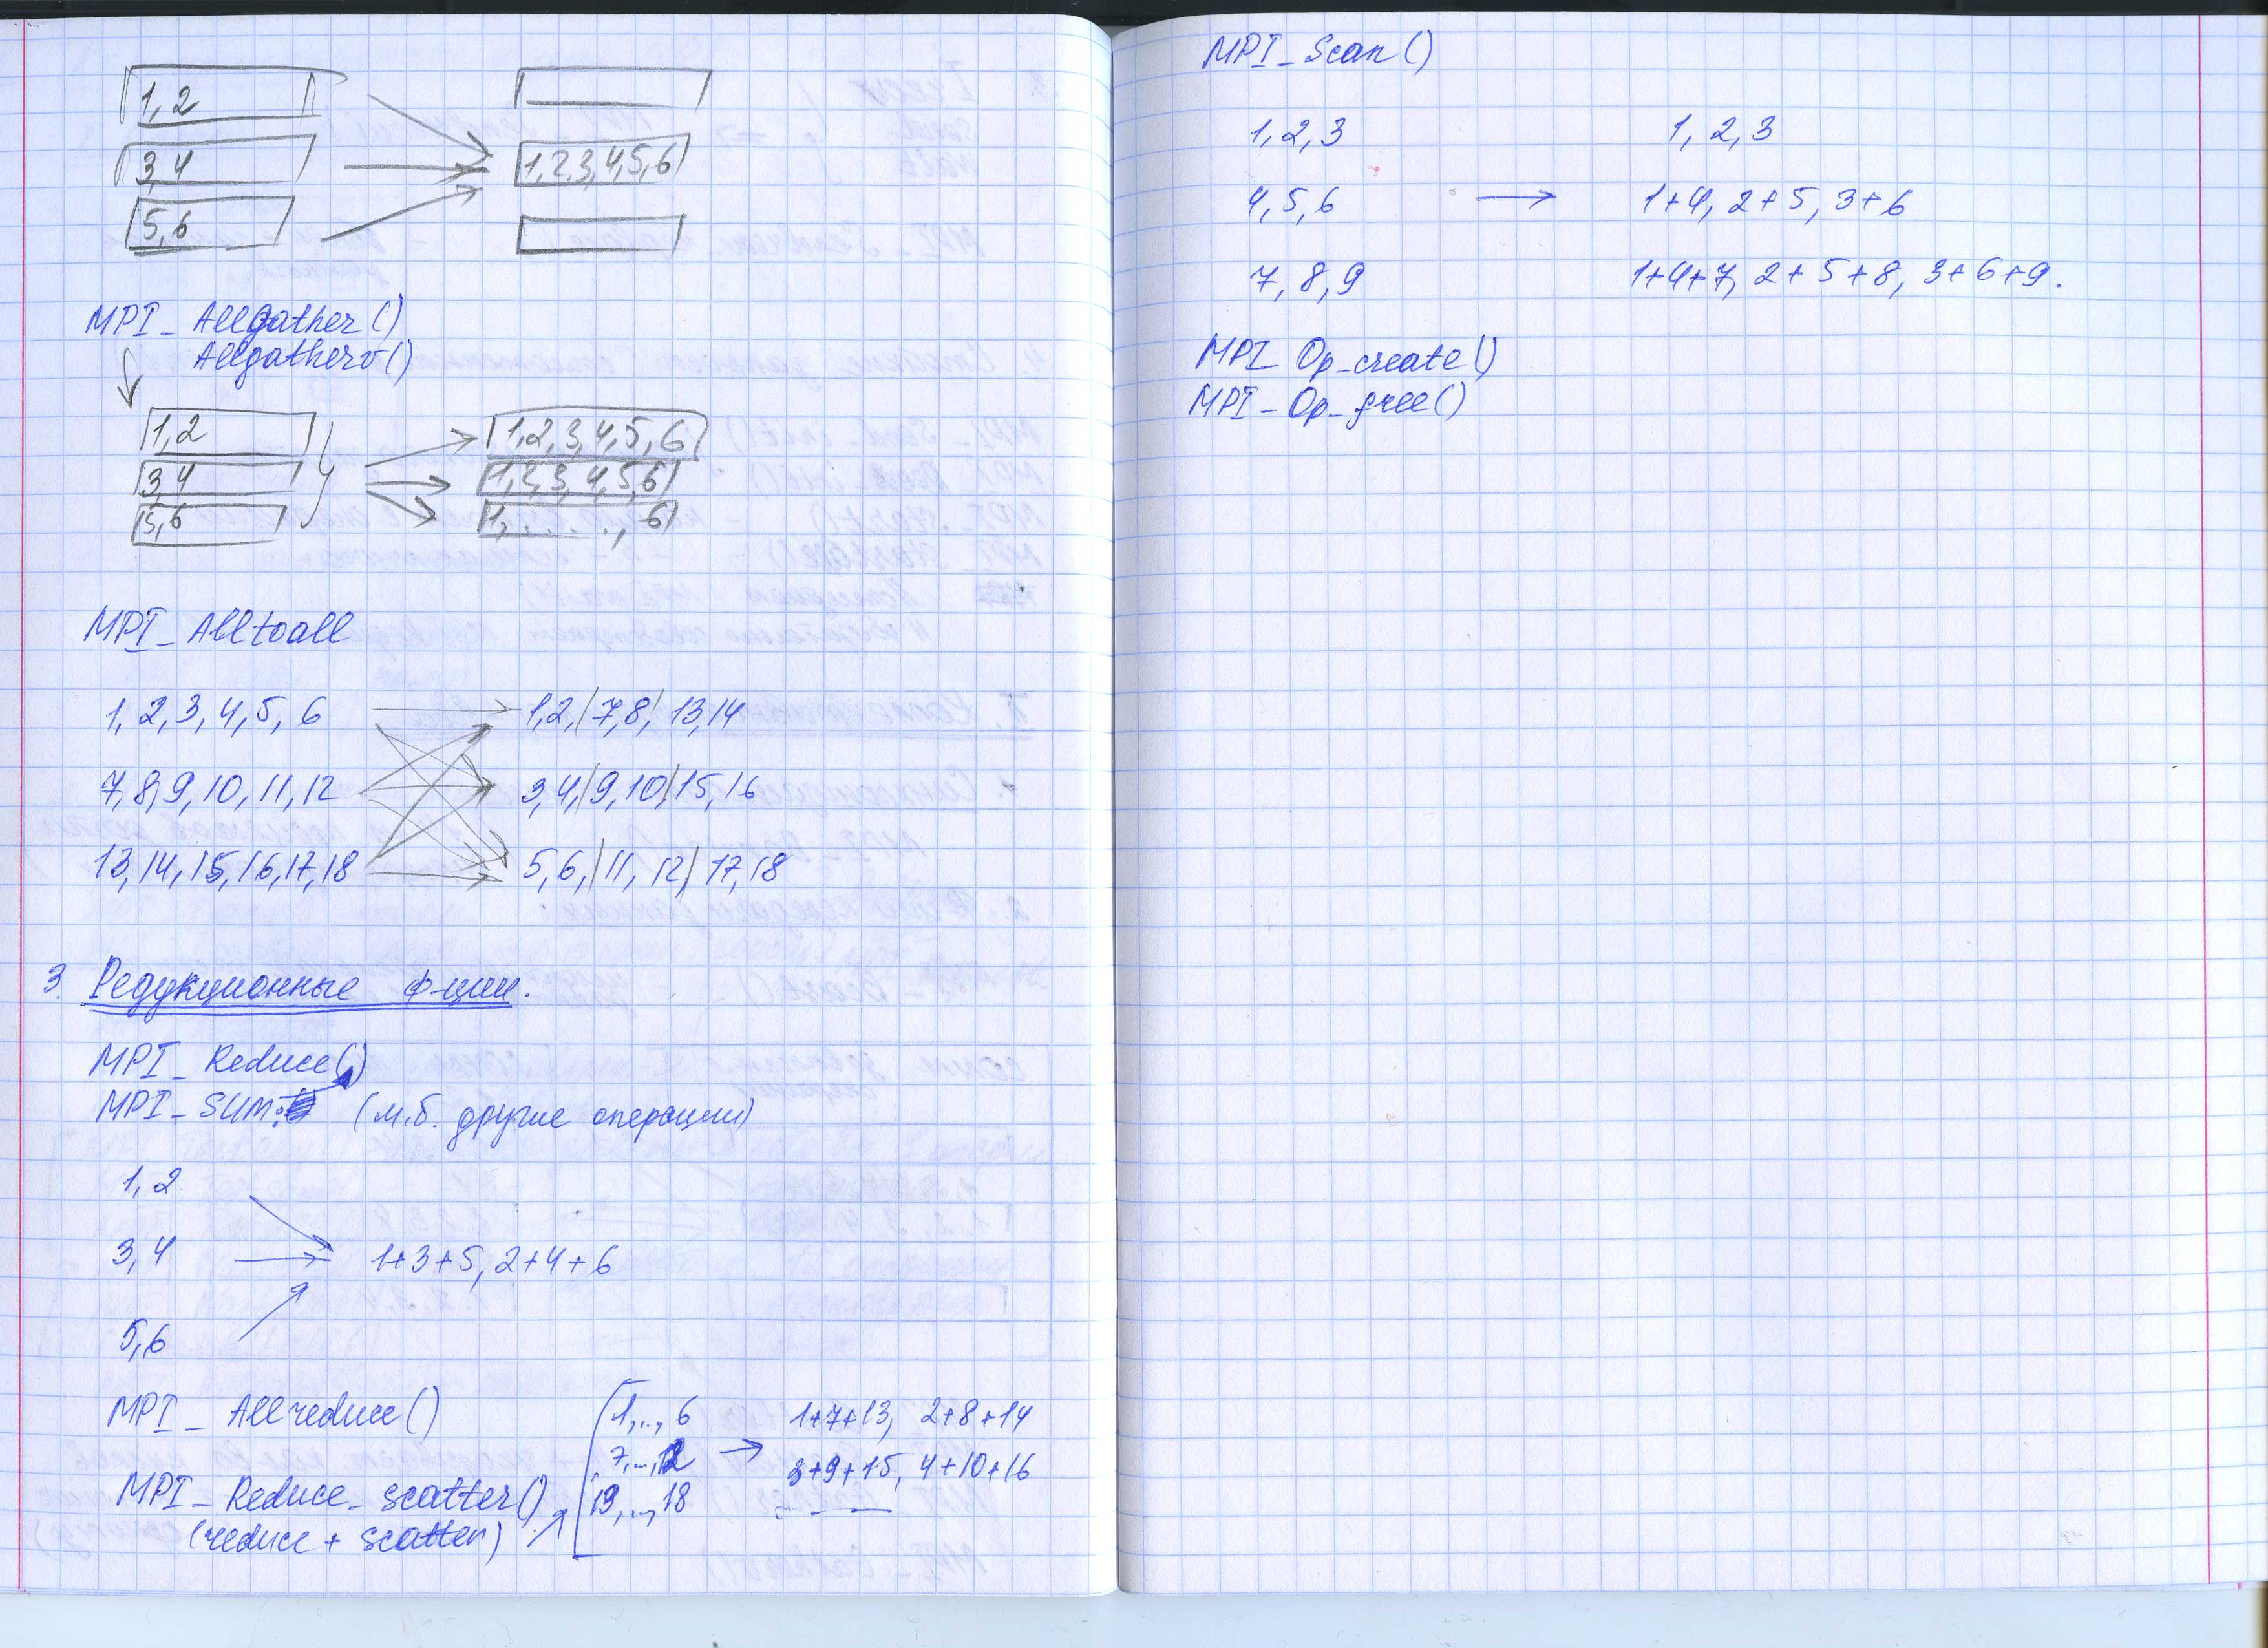 1, 2
3, 4
1, 2, 3, 4, 5, 6
5, 6
MPI_Allgather()
Allgatherv()
1, 2
1, 2, 3, 4, 5, 6
3, 4
1, 2, 3, 4, 5, 6
5, 6
1, . . . . . , 6
MPI_Alltoall
1, 2, 3, 4, 5, 6
1, 2, | 7, 8, | 13, 14
7, 8, 9, 10, 11, 12
3, 4, | 9, 10, | 15, 16
13, 14, 15, 16, 17, 18
5, 6, | 11, 12, | 17, 18
3. Редукционные ф-ции.
MPI_Reduce()
MPI_SUM (м.б. другие операции)
1, 2
3, 4
1+3+5, 2+4+6
5, 6
MPI_Allreduce()
MPI_Reduce_scatter()
(reduce + scatter)
1, .., 6
7, .., 12
13, .., 18
→
1+7+13, 2+8+14
3+9+15, 4+10+16
MPI_Scan()
1, 2, 3
1, 2, 3
4, 5, 6 → 1+4, 2+5, 3+6
7, 8, 9
1+4+7, 2+5+8, 3+6+9.
MPI_Op_create()
MPI_Op_free()